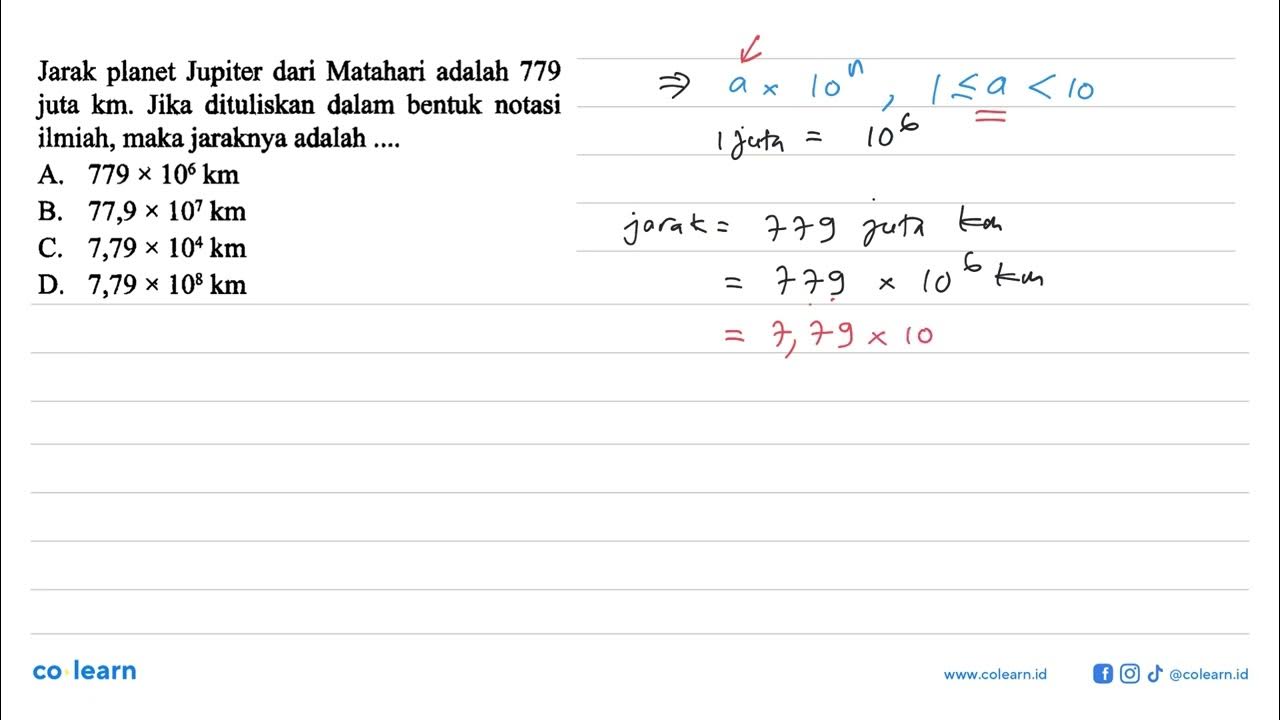 Jarak planet Jupiter dari Matahari adalah 779
juta km. Jika dituliskan dalam bentuk notasi
ilmiah, maka jaraknya adalah ....
A. 779 × 10⁶ km
B. 77,9 × 10⁷ km
C. 7,79 × 10⁴ km
D. 7,79 × 10⁸ km
⇒ a × 10ⁿ , 1 ≤ a < 10
1 juta = 10⁶
jarak = 779 juta km
= 779 × 10⁶ km
= 7,79 × 10
co learn
www.colearn.id
@colearn.id